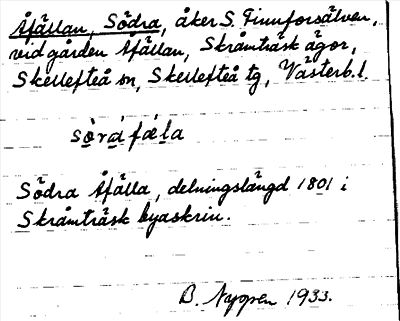 Åfällan, Södra, åker S. Finnforsälven,
vid gården Åfällan, Skråmträsk ägor,
Skellefteå sn, Skellefteå tg, Västerb.l.
sö̀rafǽla
Södra Åfälla, delningslängd 1801 i
Skråmträsk byaskrin.
B. Nyqven 1933.